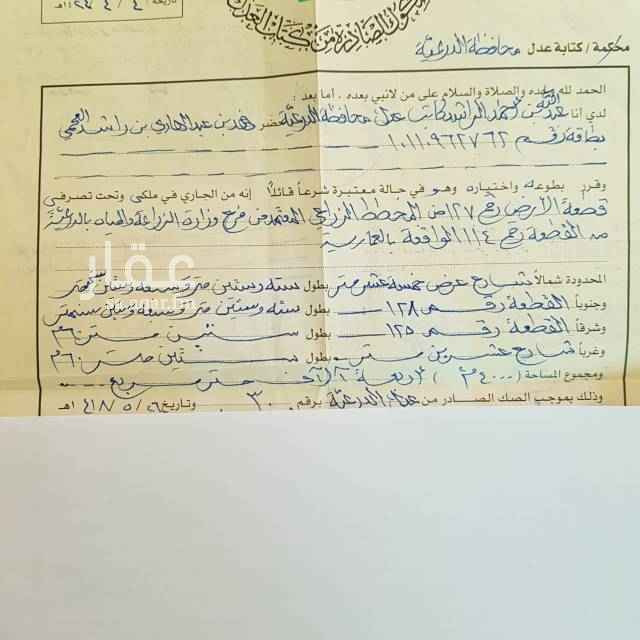 تاريخه / ٤ / ٤ / ١٤٢٤هـ
صكوك الصادرة من كتاب العدل
محكمة / كتابة عدل محافظة الدرعية
الحمد لله وحده والصلاة والسلام على من لانبي بعده . أما بعد :
لدي أنا عبدالله بن حمد الراشد كاتب عدل محافظة الدرعية حضر فهد بن عبدالهادي بن راشد
بطاقة رقم ١٠١١٠٩٦٢٧٦٢
وقرر بطوعه واختياره وهو في حالة معتبرة شرعاً قائلاً إنه من الجاري في ملكي وتحت تصرفي
قطعة الأرض رقم ١٢٧ من المخطط الزراعي المعتمد من فرع وزارة الزراعة والمياه بالدرعية
من القطعة رقم ١١٤ الواقعة بالعمارية
المحدودة شمالاً شارع عرض خمسة عشر متر بطول ستة وستين متر وسبعة وستين سنتمتر
وجنوباً القطعة رقم ١٢٨ بطول ستة وستين متر وسبعة وستين سنتمتر
وشرقاً القطعة رقم ١٢٥ بطول ستين متر ٦٠م
وغرباً شارع عشرين متر بطول ستين متر ٦٠م
ومجموع المساحة ( ٤٠٠٠م٢ ) أربعة آلاف متر مربع
وذلك بموجب الصك الصادر من عدل الدرعية برقم ٣٠ وتاريخ ٢٦ / ٥ / ١٤١٨هـ
عقار
sa.aqar.fm